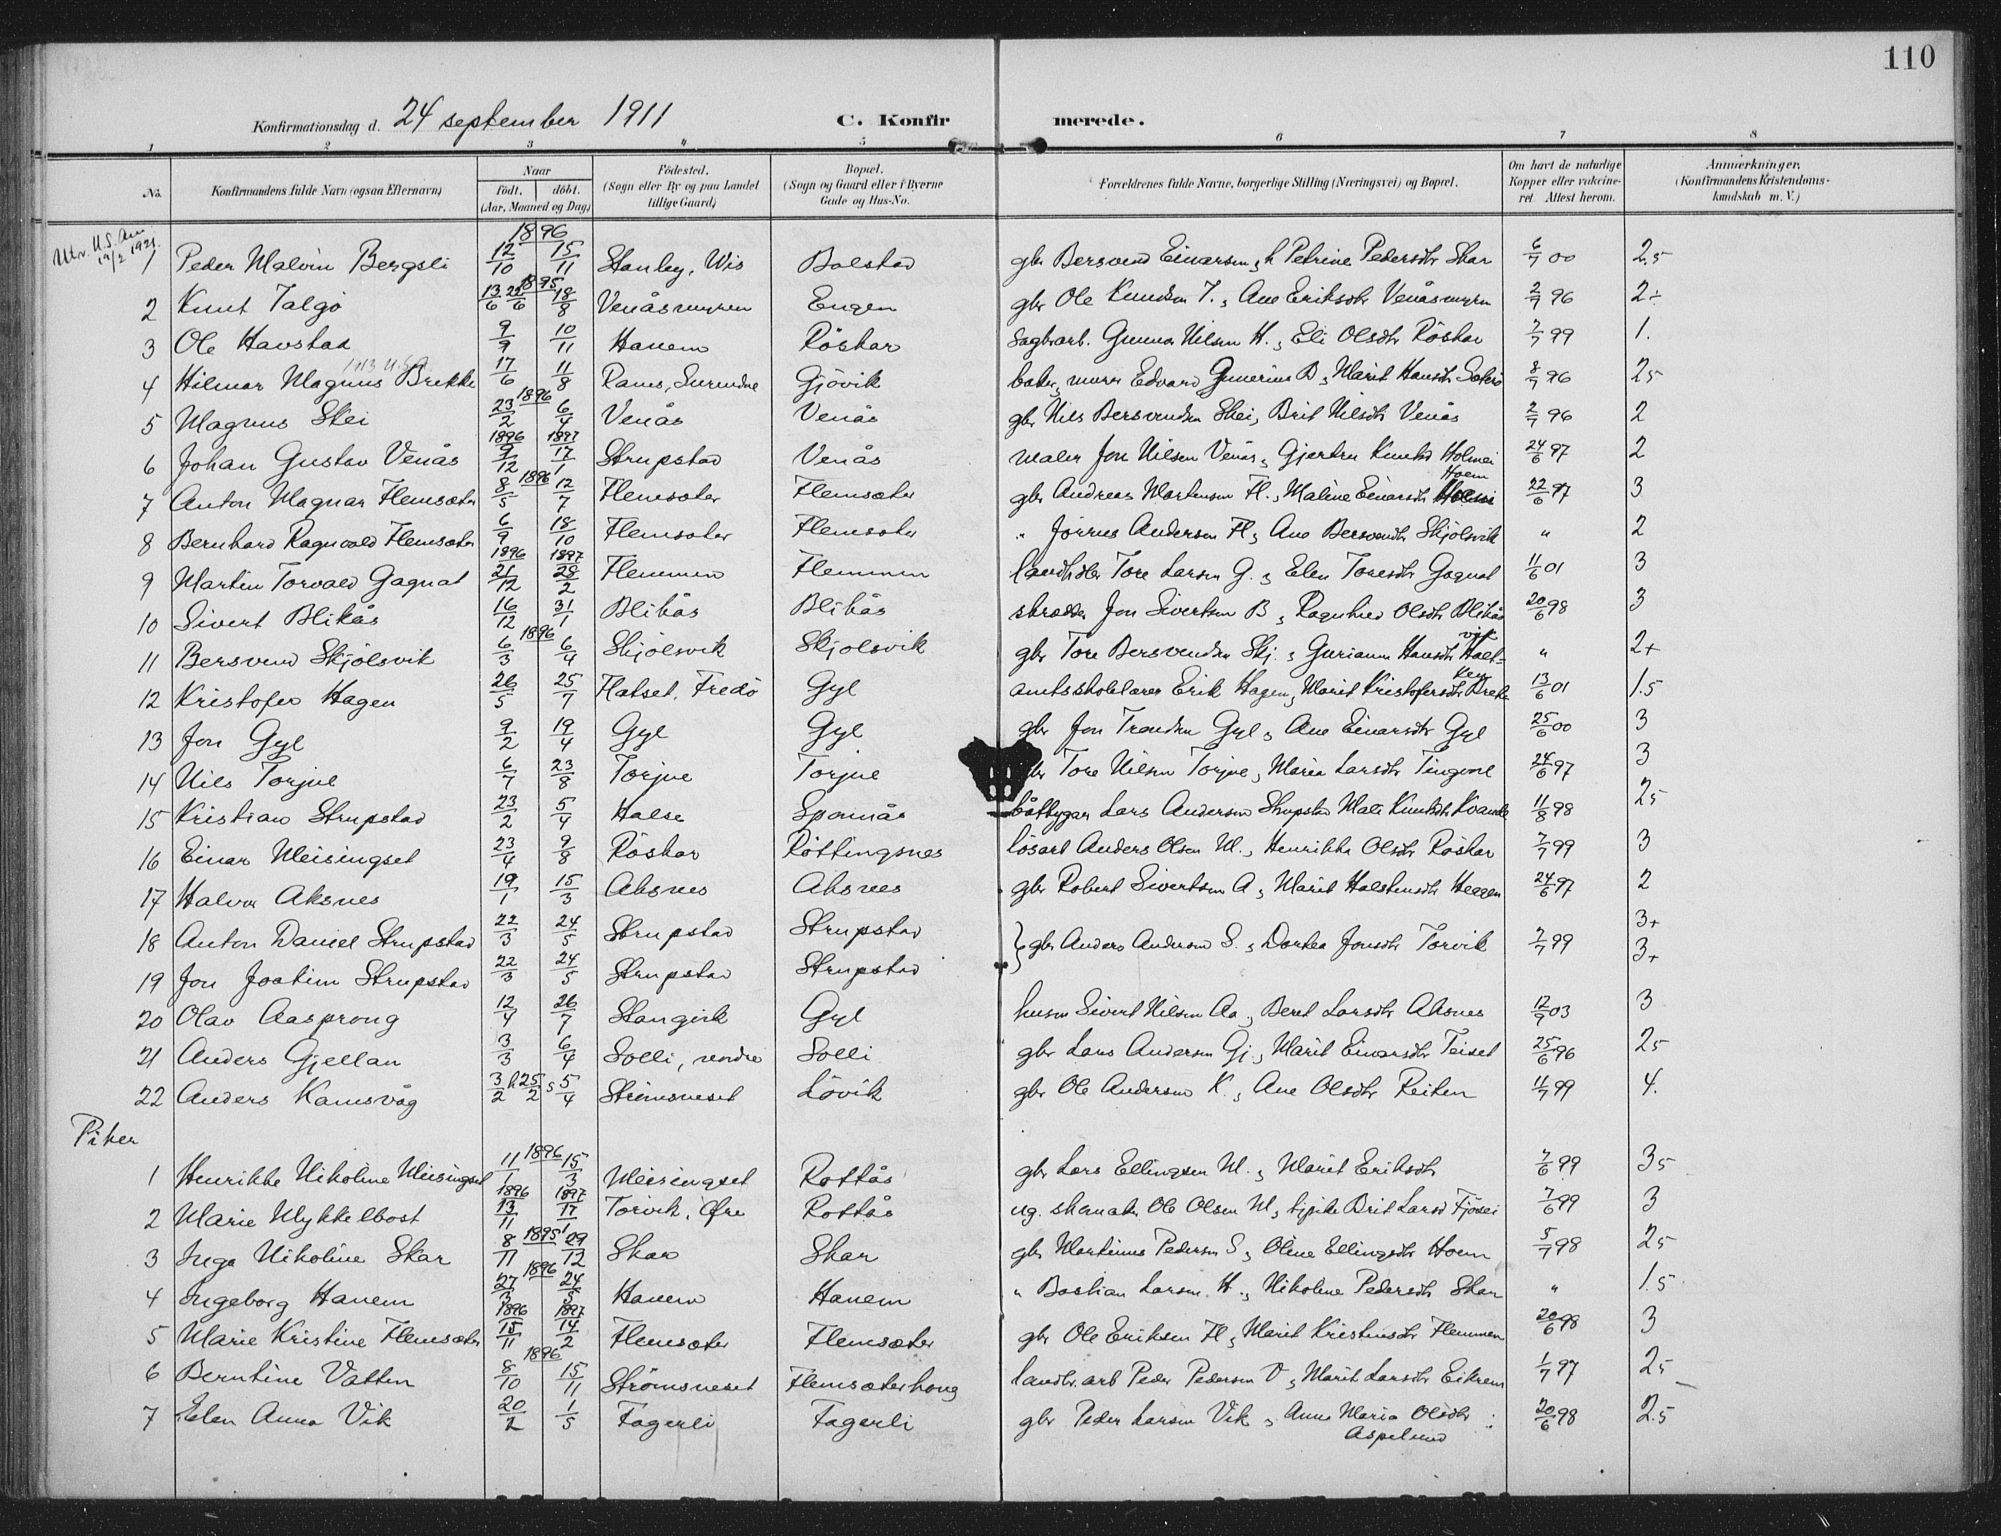 110
Konfirmationsdag d. 24 september 1911 C. Konfirmerede.
1 2 3 4 5 6 7 8
No. Konfirmandens fulde Navn (ogsaa Efternavn) Naar født. døbt. (Aar, Maaned og Dag) Fødested. (Sogn eller By og paa Landet tillige Gaard) Bopæl. (Sogn og Gaard eller i Byerne Gade og Hus-No. Forældrenes fulde Navne, borgerlige Stilling (Næringsvei) og Bopæl. Om havt de naturlige Kopper eller vakcineret. Attest herom. Anmærkninger. (Konfirmandens Kristendomskundskab m. V.)
1896
1 Peder Malvin Bergsli 12/10 15/11 Stanley, Wis Bolstad gbr Bersvend Einarsen, h Petrine Pedersdtr Skar 6/7 00 2.5
1895
2 Knut Talgø 13/6 18/8 Venåsmyren Engen gbr Ole Knudsen T., Ane Eriksdtr Venåsmyrn 2/7 96 2÷
3 Ole Havstad 9/9 10/11 Hanem Røskar Sagbrarb. Gunnar Nilsen H., Eli Olsdtr Røskar 7/7 99 1.
1913 U.S.A
4 Hilmar Magnus Brekke 17/6 11/8 Ranes, Surendal Gjøvik Edvard Gunerius B, Marit Hansdtr 8/7 96 25
1896
5 Magnus Skei 23/2 6/4 Venås Venås gbr Nils Bersvendsen Skei, Brit Nilsdtr Venås 2/7 96 2
1896 1897
6 Johan Gustav Venås 9/12 17/1 Strupstad Venås maler Jon Nilsen Venås, Gjertru Knutsd Holmei 24/6 97 2
1896
7 Anton Magnar Flemsæter 8/5 12/7 Flemsæter Flemsæter gbr Andreas Martensen Fl., Maline Einarsdtr Hoem 22/6 97 3
8 Bernhard Ragnvald Flemsæter 6/9 18/10 Flemsæter Flemsæter " Jørnus Andersen Fl, Ane Bersvendtr Skjølsvik " 2
1896 1897
9 Martin Torvald Gagnat 21/12 28/2 Flemmen Flemmen Tore Larsen G., Elen Toresdtr Gagnat 11/6 01 3
10 Sivert Blikås 16/12 31/1 Blikås Blikås skrædder Jon Sivertsen B, Ragnhild Olsdtr Blikås 20/6 98 3
1896
11 Bersvend Skjølsvik 6/3 6/4 Skjølsvik Skjølsvik gbr Tore Bersvendsen Skj., Gurianna Hansdtr Holtvik " 2+
12 Kristofer Hagen 26/5 25/7 Flatset, Fredø Gyl amtsskolelærer Erik Hagen, Marit Kristofersdtr Brekken 13/6 01 1.5
13 Jon Gyl 9/2 19/4 Gyl Gyl gbr Jon Trondsen Gyl, Ane Einarsdtr Gyl 25/6 00 3
14 Nils Torjul 6/7 23/8 Torjul Torjul gbr Tore Nilsen Torjul, Maria Larsdtr Tingvol 24/6 97 3
15 Kristian Strupstad 23/2 5/4 Halse Spernås båtbygger Lars Andersen Strupstad Mali Knutsdtr Kvande 11/8 98 25
16 Einar Meisingset 23/4 9/8 Røskar Røttingsnes løsarb Anders Olsen M., Henrikke Olsdtr Røskar 7/7 99 3
17 Halvor Aksnes 19/1 15/3 Aksnes Aksnes gbr Robert Sivertsen A, Marit Halstensdtr Heggem 24/6 97 2
18 Anton Daniel Strupstad 22/3 24/5 Strupstad Strupstad } gbr Anders Andersen S., Dortea Jonsdtr Torvik 7/7 99 3+
19 Jon Joakim Strupstad 22/3 24/5 Strupstad Strupstad 3+
20 Olav Aasprong 12/4 26/7 Stangvik Gyl husm Sivert Nilsen Aa., Beret Larsdtr Aksnes 12/7 03 3
21 Anders Gjellan 3/3 6/4 Solli, nordre Solli gbr Lars Andersen Gj, Marit Einarsdtr Teiset 25/6 96 25
22 Anders Kamsvåg 3/2 h 25/2 s 5/4 Strømsneset Løvik gbr Ole Andersen K., Ane Olsdtr Reiten 11/7 99 4.
Piker
1896
1 Henrikke Nikoline Meisingset 11/1 15/3 Meisingset Rottås gbr Lars Ellingsen M., Marit Eriksdtr 7/6 99 35
1896 1897
2 Marie Mykkelbost 13/11 17/1 Torvik, Øre Rottås ug. Ole Olsen M, Brit Larsd 7/6 99 3
1895
3 Inga Nikoline Skar 8/11 29/12 Skar Skar gbr Martinus Pedersen S, Oline Ellingsdtr Hoem 5/7 98 25
1896
4 Ingeborg Hanem 27/3 24/5 Hanem Hanem " Bastian Larsen H., Nikoline Pedersdtr Skar " 1.5
1896 1897
5 Marie Kristine Flemsæter 15/11 14/2 Flemsæter Flemsæter gbr Ole Eriksen Fl, Marit Kristensdtr Flemmen 20/6 98 3
1896
6 Berntine Vatten 8/10 15/11 Strømsneset Flemsæterhaug landbr.arb Peder Pedersen V, Marit Larsdtr Eikrem 1/7 97 25
7 Elen Anna Vik 20/2 1/5 Fagerli Fagerli gbr Peder Larsen Vik, Anne Maria Olsdtr Aspelund 20/6 98 2.5